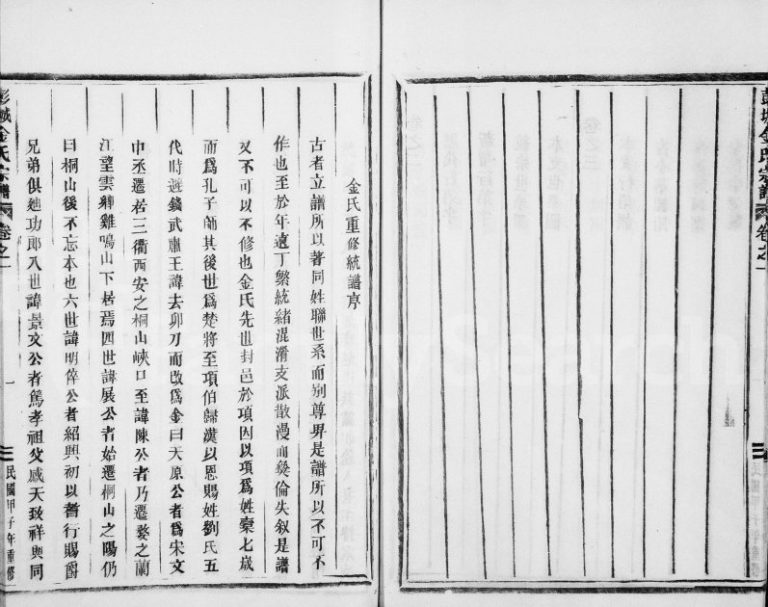 金氏重修統譜序
古者立譜所以著同姓聯世系而别尊卑是譜所以不可不
作也至於年遠丁繁統緒混淆支派散漫而彝倫失叙是譜
又不可以不修也金氏先世封邑於項因以項爲姓橐七歲
而爲孔子師其後世爲楚將至項伯歸漢以恩賜姓劉氏五
代時避錢武肅王諱去卯刀而改爲金曰天原公者爲宋文
中丞遷居三衢西安之桐山峽口至諱陳公者乃遷婺之蘭
江望雲鄉雞鳴山下居焉四世諱展公者始遷桐山之陽仍
曰桐山後不忘本也六世諱明倅公者紹興初以耆行賜爵
兄弟俱廸功郎八世諱景文公者篤孝祖父感天致祥與同
彭城金氏宗譜 卷之一 一 民國甲子年重修
彭城金氏宗譜 卷之一